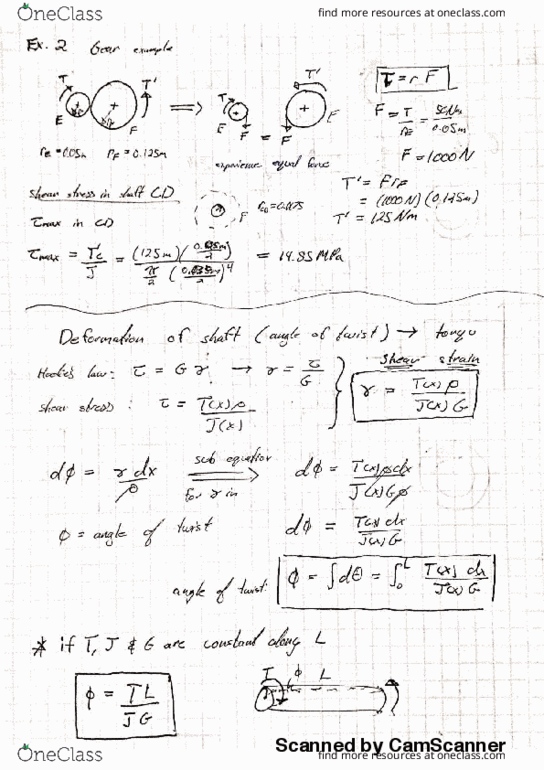 OneClass
find more resources at oneclass.com
Ex. 2 Gear example
T T' T T'
E F E F
F = F
r_E = 0.05m r_F = 0.125m
experience equal force
τ = r F
F = T/r_E = 50Nm/0.05m
F = 1000N
T' = F r_F
= (1000N)(0.125m)
T' = 125Nm
shear stress in shaft CD
τmax in CD
F
τmax = T'c/J = (125m)(0.035m/2) / π/2 (0.035m/2)^4 = 14.85 MPa
Deformation of shaft (angle of twist) → torqu
Hooke's law: τ = G γ → γ = τ/G
shear strain
γ = T(x)ρ / J(x)G
shear stress: τ = T(x)ρ / J(x)
dφ = γ dx / ρ
sub equation
for γ in
dφ = T(x)ρdx / J(x)Gρ
φ = angle of twist
dφ = T(x) dx / J(x)G
angle of twist: φ = ∫dθ = ∫₀ᴸ T(x) dx / J(x)G
* if T, J & G are constant along L
φ = TL / JG
T φ L
Scanned by CamScanner
OneClass
find more resources at oneclass.com